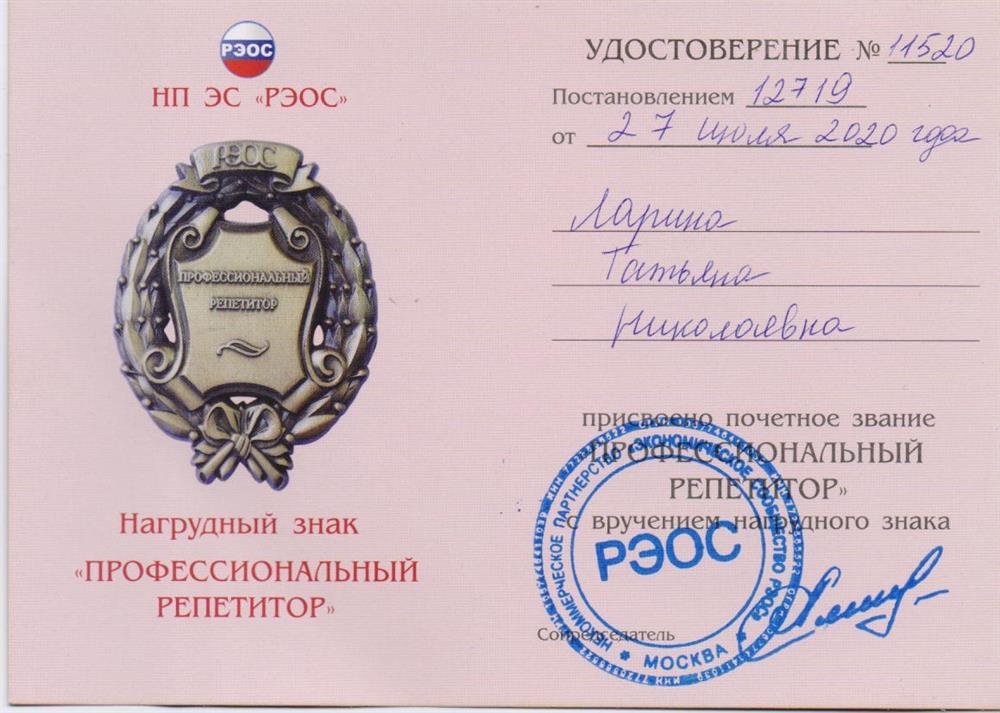 РЭОС
НП ЭС «РЭОС»
РЭОС
ПРОФЕССИОНАЛЬНЫЙ
РЕПЕТИТОР
Нагрудный знак
«ПРОФЕССИОНАЛЬНЫЙ
РЕПЕТИТОР»
УДОСТОВЕРЕНИЕ № 11520
Постановлением 12719
от 27 июля 2020 года
Ларина
Татьяна
Николаевна
присвоено почетное звание
«ПРОФЕССИОНАЛЬНЫЙ
РЕПЕТИТОР»
с вручением нагрудного знака
НЕКОММЕРЧЕСКОЕ ПАРТНЕРСТВО «ЭКОНОМИЧЕСКОЕ СООБЩЕСТВО РЭОС»
РЭОС
* МОСКВА *
Сопредседатель